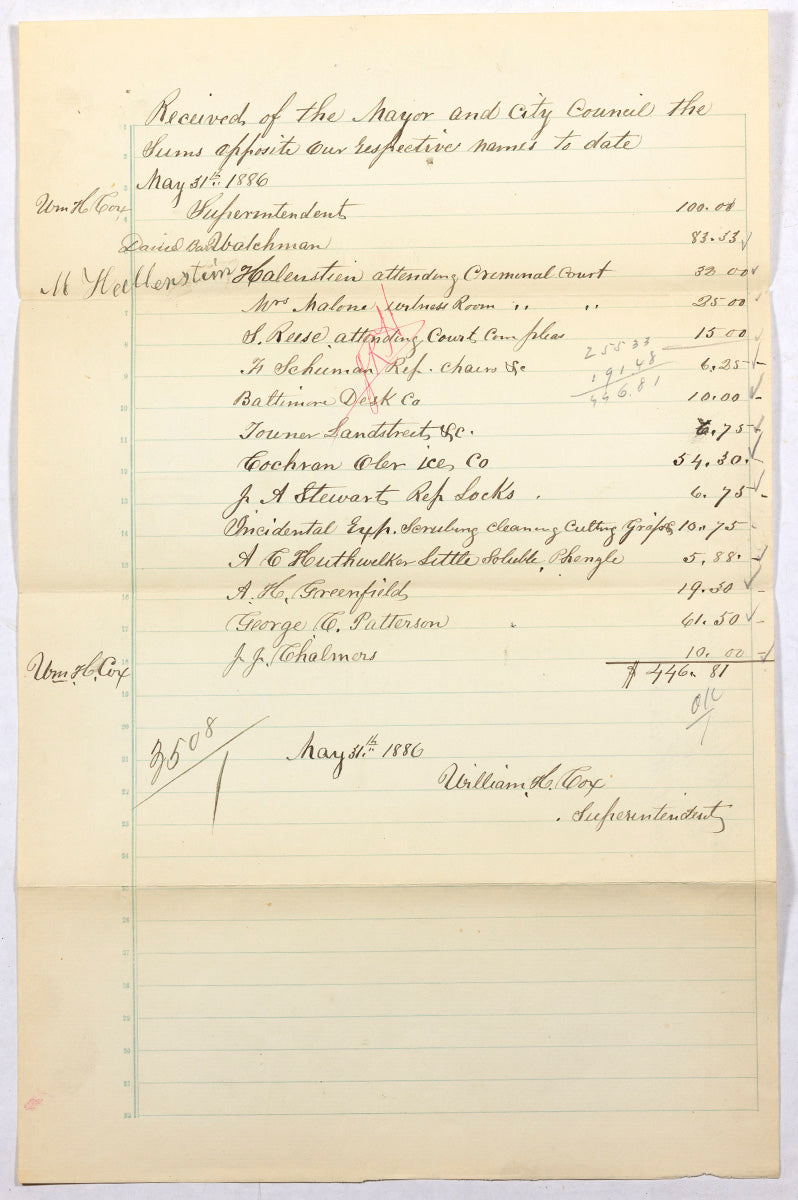 Received of the Mayor and City Council the
Sums opposite our respective names to date
May 31th 1886
Wm H. Cox Superintendent 100.00
David Watchman 83.33
M Hallenstein Halenstien attending Criminal Court 32 00
Mrs Malone witness Room " " 25 00
S. Reese attending Court Com pleas 15 00
255 33
F Schuman Rep. chairs &c 6.25
191 48
Baltimore Desk Co 10.00
446.81
Towner Landstreet &c. 6.75
Cochran Oler ice Co 54.30
J A Stewart Rep Locks . 6.75
Incidental Exp. Scrubing cleaning Cutting Grass 10.75
A C Huthwelker Little Soluble Phengle 5.88
A. H. Greenfield 19.30
George C. Patterson " 61.50
J. J. Chalmers 10.00
Wm. H. Cox $ 446.81
OK
3508
1
May 31th 1886
William H. Cox
Superintendent